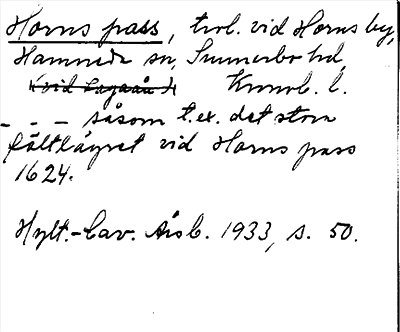 Horns pass, trol. vid Horns by,
Hamneda sn, Sunnerbo hd,
(vid Lagaån) Kronob. l.
- - - såsom t.ex. det stora
fältlägret vid Horns pass
1624.
Hylt.-Cav. Årsb. 1933, s. 50.